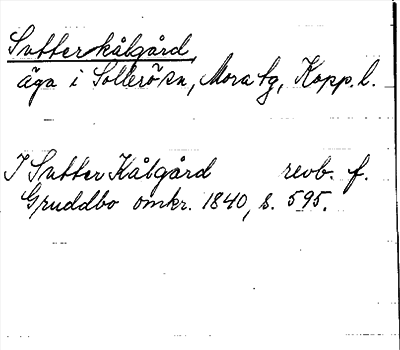 Sutterkålgård,
äga i Sollerö sn, Mora tg, Kopp. l.
I Sutter Kålgård revb. f.
Gruddbo omkr. 1840, s. 595.